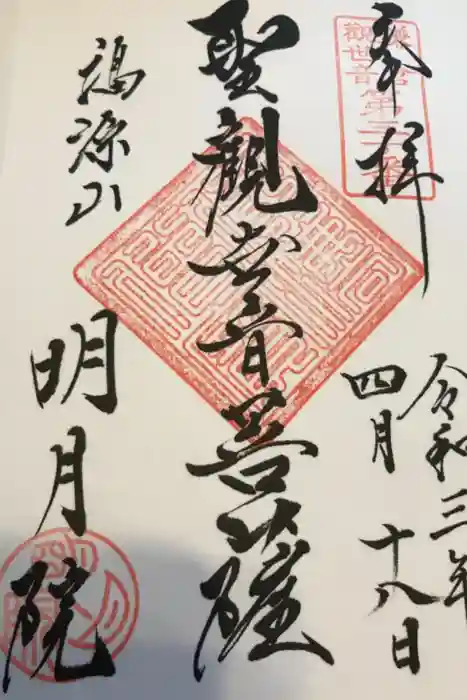 奉拝
鎌倉
観世音
第三十番
令和三年
四月十八日
聖觀世音菩薩
福源山
明月院